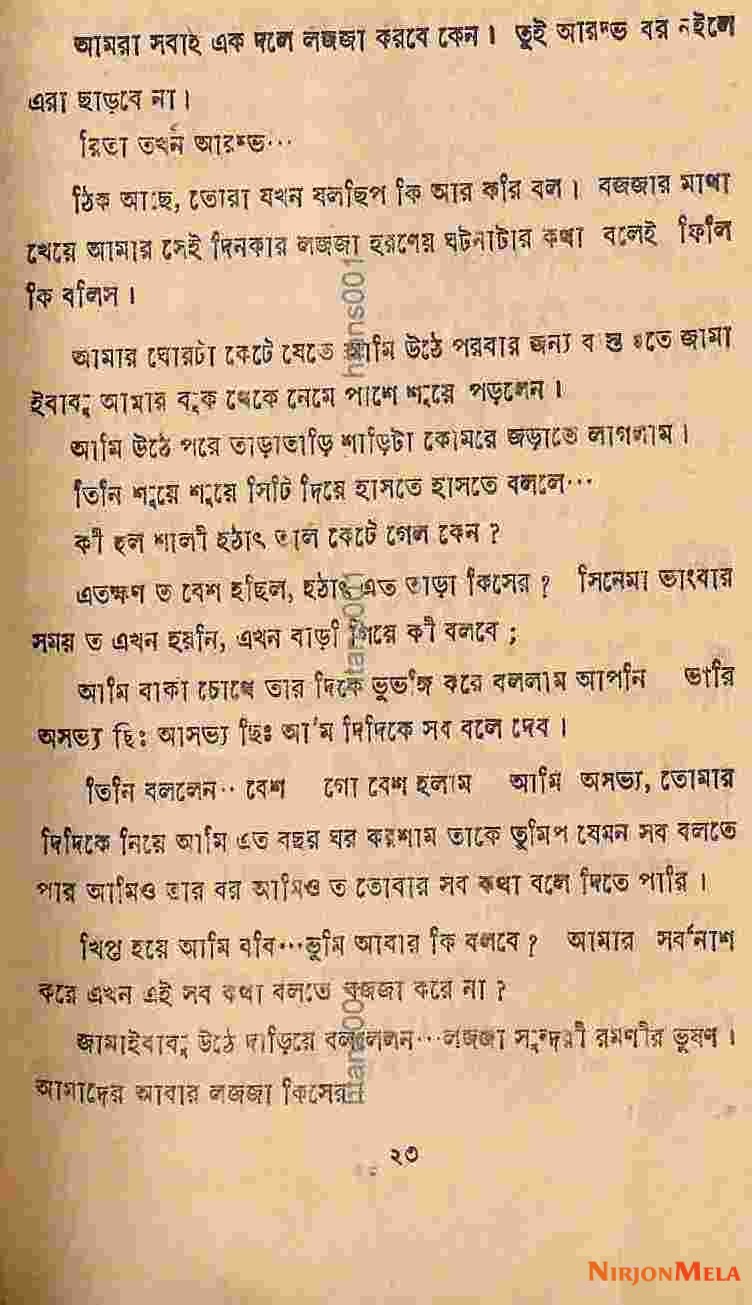 আমরা সবাই এক দলে লজ্জা করবে কেন। তুই আরম্ভ বর নইলে
এরা ছাড়বে না।
রিতা তখন আরম্ভ···
ঠিক আছে, তোরা যখন বলছিপ কি আর করি বল। বজ্জার মাথা
খেয়ে আমার সেই দিনকার লজ্জা হরণেয় ঘটনাটার কথা বলেই ফিলি
কি বলিস।
আমার ঘোরটা কেটে যেতে আমি উঠে পরবার জন্য ব্যস্ত হতে জামা
ইবাবু আমার বুক থেকে নেমে পাশে শুয়ে পড়লেন।
আমি উঠে পরে তাড়াতাড়ি শাড়িটা কোমরে জড়াতে লাগলাম।
তিনি শুয়ে শুয়ে সিটি দিয়ে হাসতে হাসতে বললে···
কী হল শালী হঠাৎ তাল কেটে গেল কেন?
এতক্ষণ ত বেশ হছিল, হঠাৎ এত তাড়া কিসের? সিনেমা ভাংবার
সময় ত এখন হয়নি, এখন বাড়ী গিয়ে কী বলবে;
আমি বাকা চোখে তার দিকে ভুভঙ্গি করে বললাম আপনি ভারি
অসভ্য ছিঃ আসভ্য ছিঃ আমি দিদিকে সব বলে দেব।
তিনি বললেন·· বেশ গো বেশ হলাম আমি অসভ্য, তোমার
দিদিকে নিয়ে আমি এত বছর ঘর করশাম তাকে তুমিপ যেমন সব বলতে
পার আমিও তার বর আমিও ত তোবার সব কথা বলে দিতে পারি।
খিপ্ত হয়ে আমি ববি···ভুমি আবার কি বলবে? আমার সর্বনাশ
করে এখন এই সব কথা বলতে বজ্জা করে না?
জামাইবাবু উঠে দাড়িয়ে বললেলন···লজ্জা সুন্দরী রমণীর ভুষণ।
আমাদের আবার লজ্জা কিসের।
২৩
NIRJONMELA